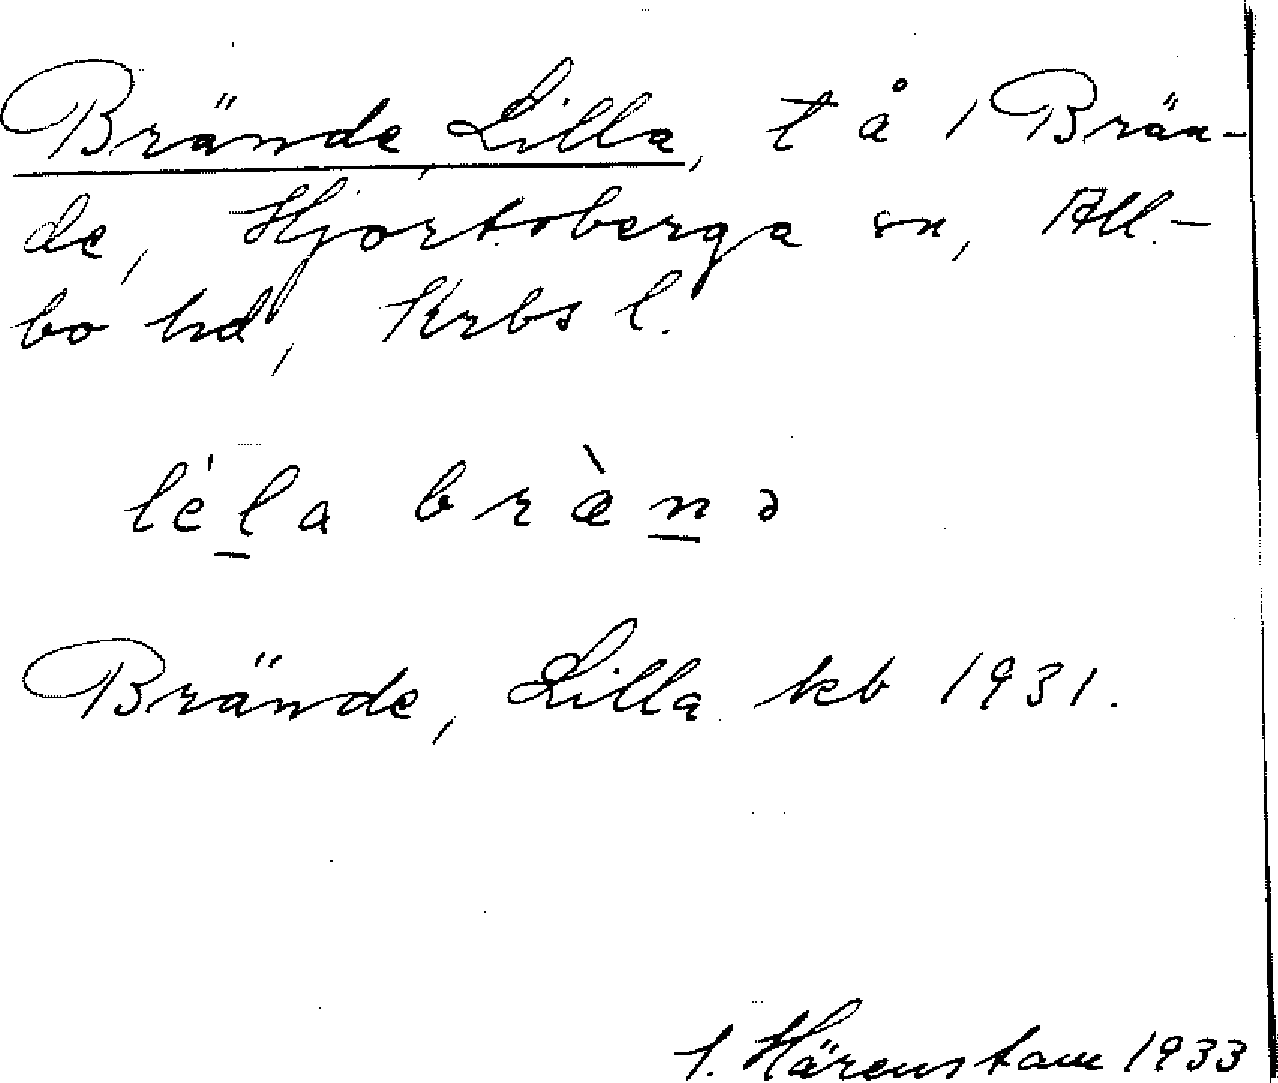 Brände, Lilla, t å 1 Brän-
de, Hjortsberga sn, All-
bo hd, Krbs l.
léḻa bræ̀ṉə
Brände, Lilla kb 1931.
I. Härenstam 1933